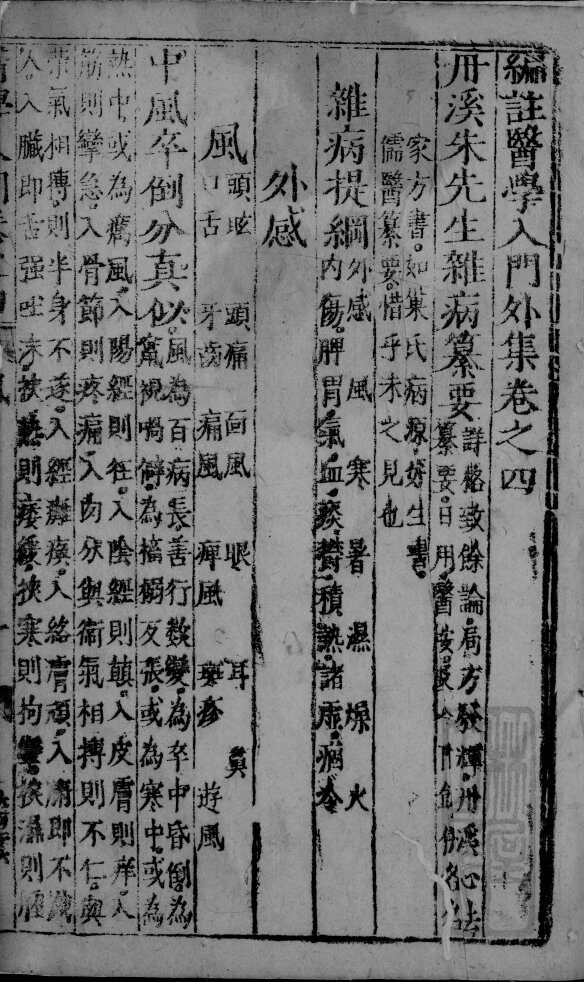 編註醫學入門外集卷之四
丹溪朱先生雜病纂要
詳格致餘論局方發揮丹溪心法
纂要日用醫按及
家方書如巢氏病源好生書
儒醫纂要惜乎未之見也
雜病提綱
外感風寒暑濕燥火
內傷脾胃氣血痰鬱積熱諸虛
外感
風
頭眩 頭痛 面風 眼 耳 鼻
口舌 牙齒 痛風 痺風 癍疹 遊風
中風卒倒分真似
風為百病長善行數變為卒中昏倒為
竄視喎僻為搐搦反張或為寒中或為
熱中或為癘風入陽經則狂入陰經則顛入皮膚則痒入
筋則攣急入骨節則疼痛入肉分與衛氣相搏則不仁與
榮氣相搏則半身不遂入經癱瘓入絡膚頑入腑即不識
人入臟即舌强吐沫挾熱則痿緩挾寒則拘攣挾濕則腫